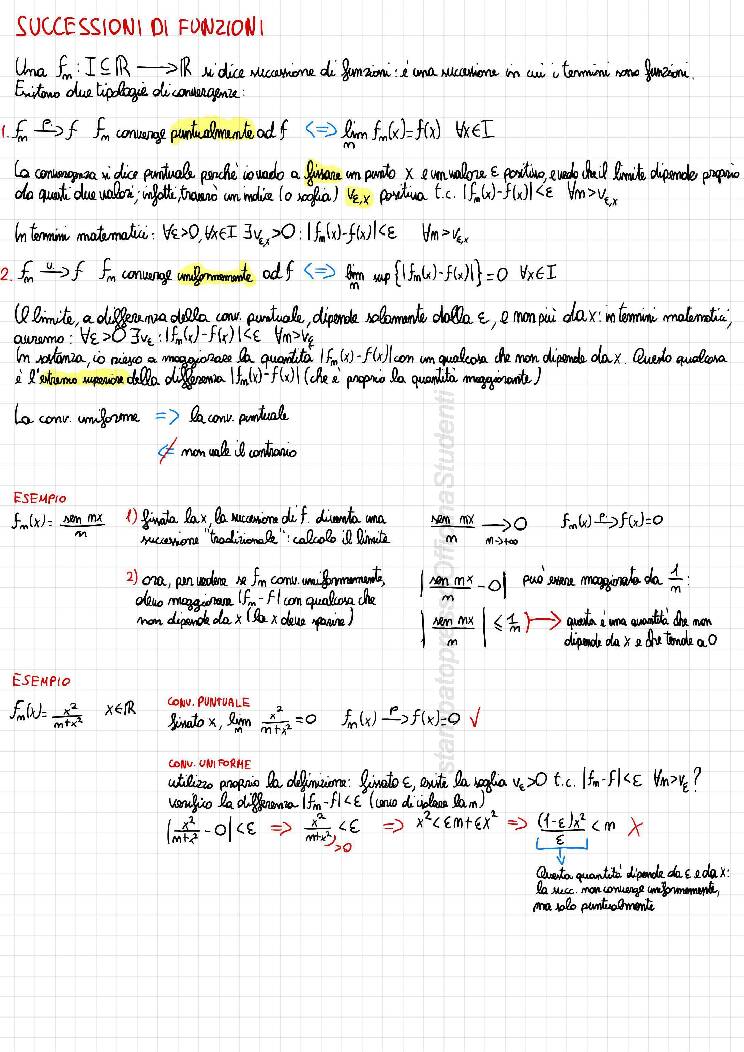 SUCCESSIONI DI FUNZIONI
Una fₙ: I⊆ℝ → ℝ si dice successione di funzioni: è una successione in cui i termini sono funzioni.
Esistono due tipologie di convergenze:
1. fₙ –p→ f fₙ converge puntualmente ad f <=> lim_n fₙ(x)=f(x) ∀x∈I
La convergenza si dice puntuale perché io vado a fissare un punto x e un valore ε positivo, e vedo che il limite dipende proprio
da questi due valori; infatti, troverò un indice (o soglia) ν_ε,x positiva t.c. |fₙ(x)-f(x)|<ε ∀n>ν_ε,x
In termini matematici: ∀ε>0, ∀x∈I ∃ν_ε,x>0: |fₙ(x)-f(x)|<ε ∀n>ν_ε,x
2. fₙ –u→ f fₙ converge uniformemente ad f <=> lim_n sup{|fₙ(x)-f(x)|}=0 ∀x∈I
Il limite, a differenza della conv. puntuale, dipende solamente dalla ε, e non più da x: in termini matematici,
avremo: ∀ε>0 ∃ν_ε: |fₙ(x)-f(x)|<ε ∀n>ν_ε
In sostanza, io riesco a maggiorare la quantità |fₙ(x)-f(x)| con un qualcosa che non dipende da x. Questo qualcosa
è l'estremo superiore della differenza |fₙ(x)-f(x)| (che è proprio la quantità maggiorante)
La conv. uniforme => la conv. puntuale
⇍ non vale il contrario
ESEMPIO
fₙ(x)= sen nx / n 1) fissata la x, la successione di f. diventa una
successione "tradizionale": calcolo il limite
sen nx / n → 0 n→+∞ fₙ(x) –p→ f(x)=0
2) ora, per vedere se fₙ conv. uniformemente,
devo maggiorare |fₙ-f| con qualcosa che
non dipende da x (la x deve sparire)
|sen nx / n - 0| può essere maggiorato da 1/n:
|sen nx / n| ≤ 1/n → questa è una quantità che non
dipende da x e che tende a 0
ESEMPIO
fₙ(x)= x²/(n+x²) x∈ℝ
CONV. PUNTUALE
fissato x, lim_n x²/(n+x²) =0 fₙ(x) –p→ f(x)=0 ✓
CONV. UNIFORME
utilizzo proprio la definizione: fissato ε, esiste la soglia ν_ε>0 t.c. |fₙ-f|<ε ∀n>ν_ε?
verifico la differenza |fₙ-f|<ε (cerco di isolare la n)
|x²/(n+x²) - 0|<ε => x²/(n+x²) <ε => x²<εn+εx² => (1-ε)x²/ε < n X
>0
Questa quantità dipende da ε e da x:
la succ. non converge uniformemente,
ma solo puntualmente
stampatopressoOfficinaStudenti